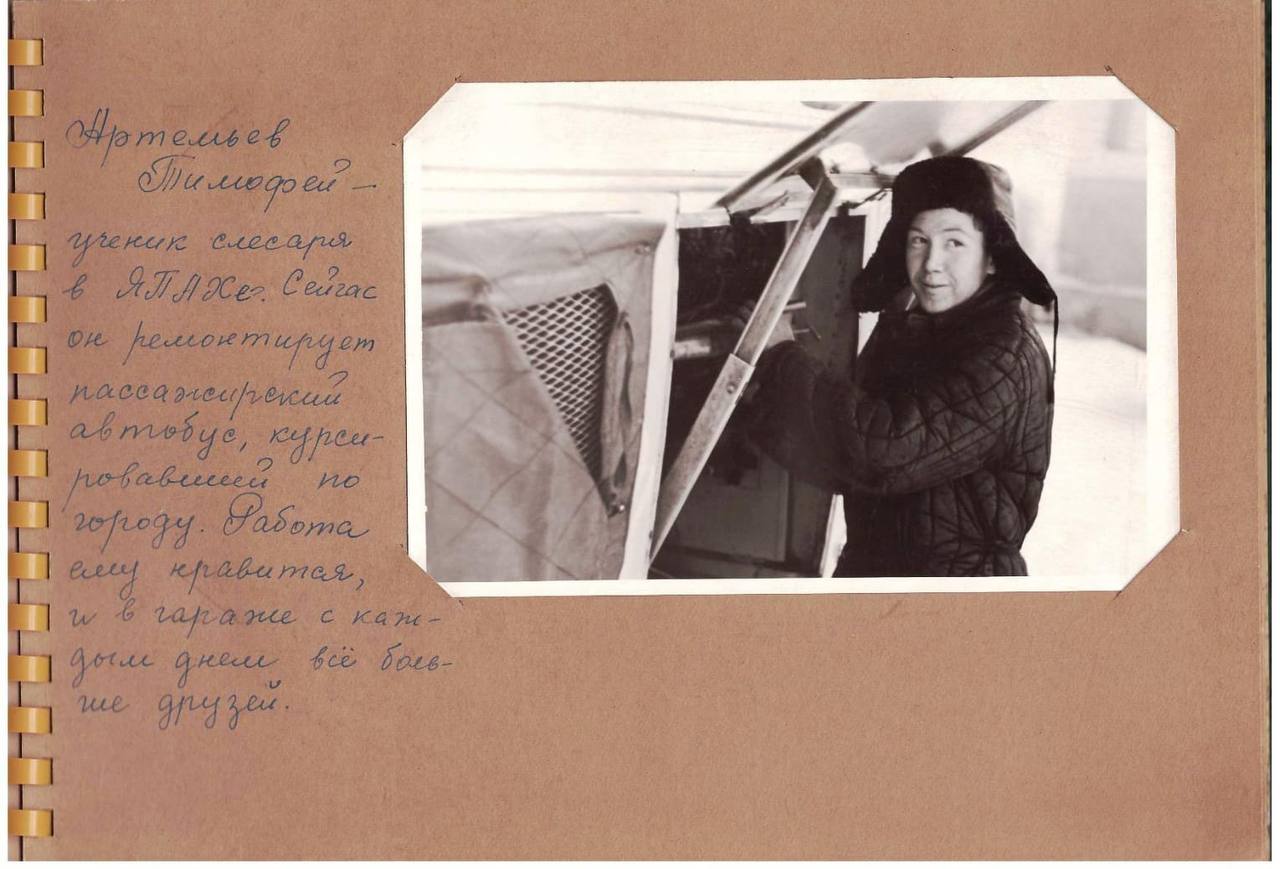 Артемьев
Тимофей –
ученик слесаря
в ЯПАХе. Сейчас
он ремонтирует
пассажирский
автобус, курси-
ровавший по
городу. Работа
ему нравится,
и в гараже с каж-
дым днем всё боль-
ше друзей.